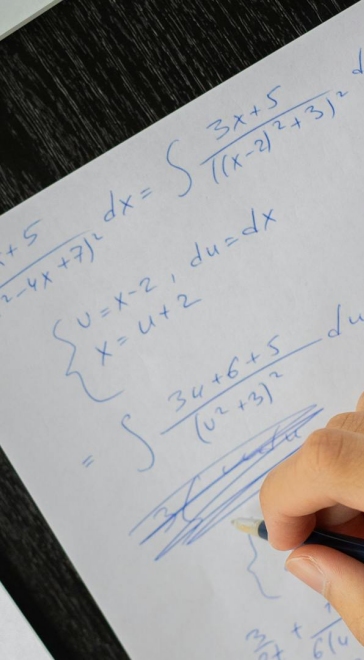 x+5 / (x²-4x+7)² dx = ∫ 3x+5 / ((x-2)²+3)² d
{ u=x-2, du=dx
x=u+2
= ∫ 3u+6+5 / (u²+3)² du
3/2t + 1/6(u